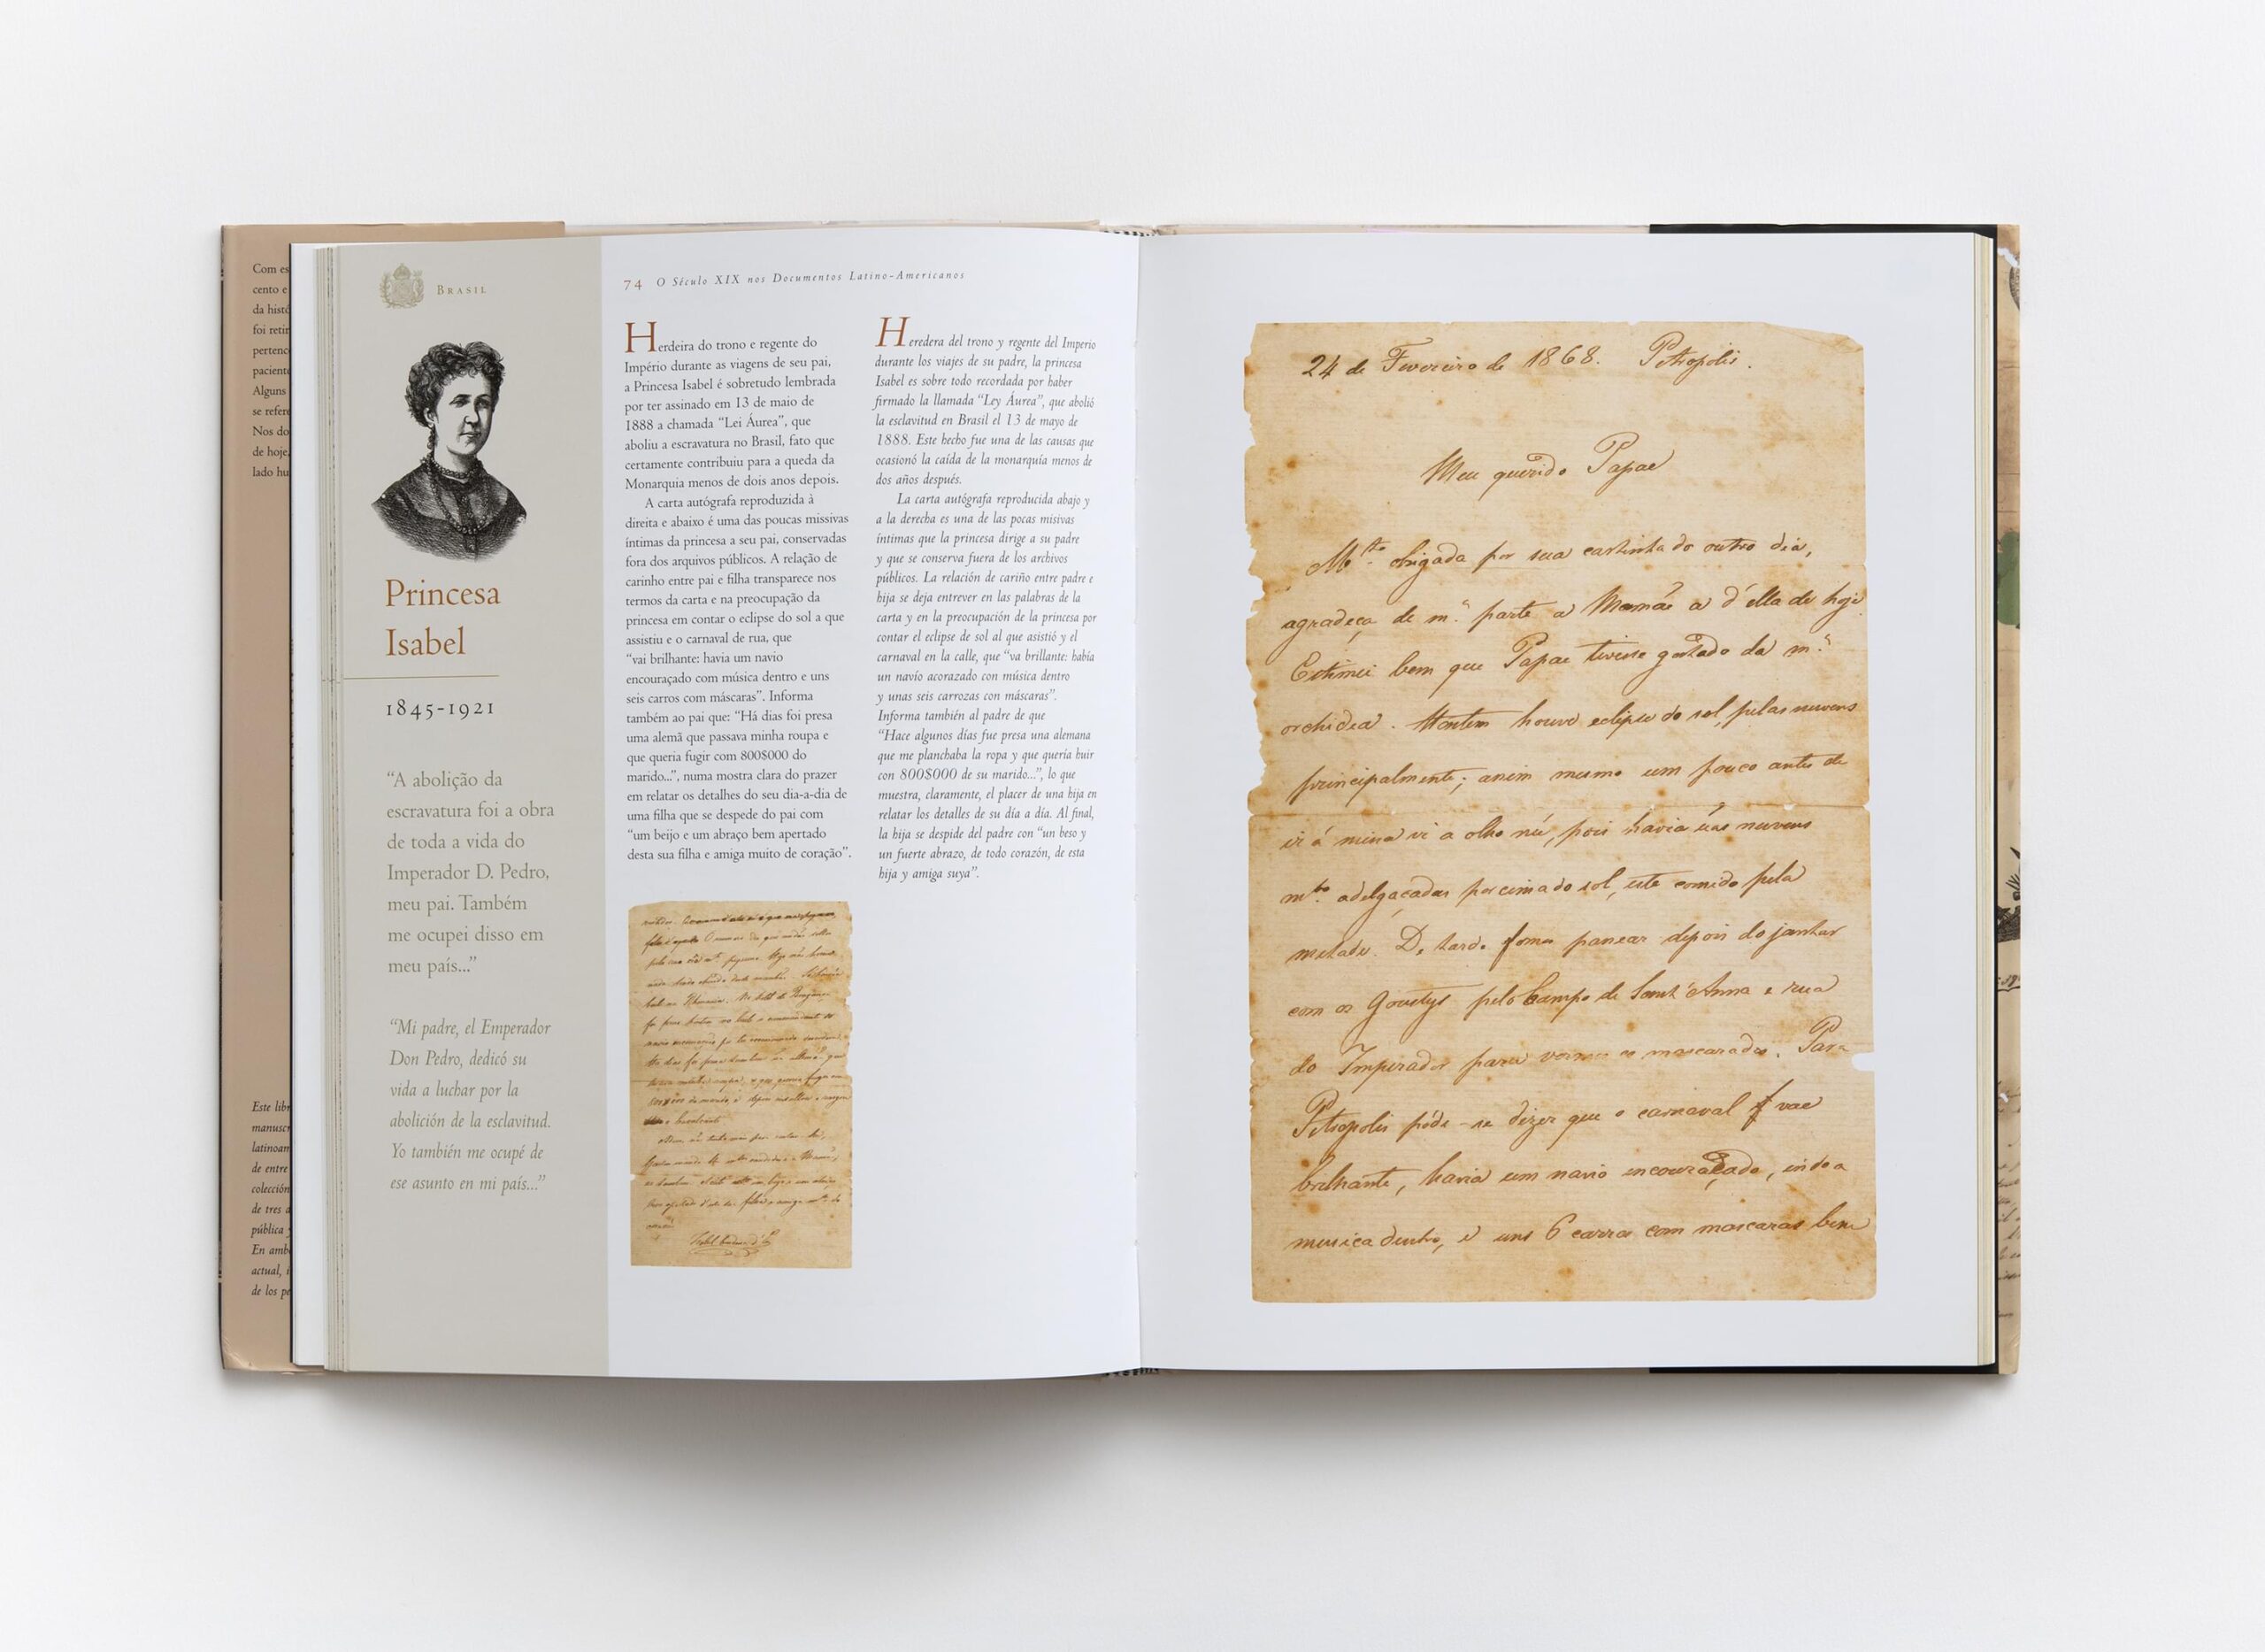 Com es
cento e
da histó
foi retir
pertenc
paciente
Alguns
se refere
Nos do
de hoje,
lado hu
Este libr
manuscr
latinoam
de entre
colección
de tres a
pública y
En amb
actual, i
de los pe
BRASIL
Princesa
Isabel
1845-1921
“A abolição da
escravatura foi a obra
de toda a vida do
Imperador D. Pedro,
meu pai. Também
me ocupei disso em
meu país...”
“Mi padre, el Emperador
Don Pedro, dedicó su
vida a luchar por la
abolición de la esclavitud.
Yo también me ocupé de
ese asunto en mi país...”
74 O Século XIX nos Documentos Latino-Americanos
Herdeira do trono e regente do
Império durante as viagens de seu pai,
a Princesa Isabel é sobretudo lembrada
por ter assinado em 13 de maio de
1888 a chamada “Lei Áurea”, que
aboliu a escravatura no Brasil, fato que
certamente contribuiu para a queda da
Monarquia menos de dois anos depois.
A carta autógrafa reproduzida à
direita e abaixo é uma das poucas missivas
íntimas da princesa a seu pai, conservadas
fora dos arquivos públicos. A relação de
carinho entre pai e filha transparece nos
termos da carta e na preocupação da
princesa em contar o eclipse do sol a que
assistiu e o carnaval de rua, que
“vai brilhante: havia um navio
encouraçado com música dentro e uns
seis carros com máscaras”. Informa
também ao pai que: “Há dias foi presa
uma alemã que passava minha roupa e
que queria fugir com 800$000 do
marido...”, numa mostra clara do prazer
em relatar os detalhes do seu dia-a-dia de
uma filha que se despede do pai com
“um beijo e um abraço bem apertado
desta sua filha e amiga muito de coração”.
Heredera del trono y regente del Imperio
durante los viajes de su padre, la princesa
Isabel es sobre todo recordada por haber
firmado la llamada “Ley Áurea”, que abolió
la esclavitud en Brasil el 13 de mayo de
1888. Este hecho fue una de las causas que
ocasionó la caída de la monarquía menos de
dos años después.
La carta autógrafa reproducida abajo y
a la derecha es una de las pocas misivas
íntimas que la princesa dirige a su padre
y que se conserva fuera de los archivos
públicos. La relación de cariño entre padre e
hija se deja entrever en las palabras de la
carta y en la preocupación de la princesa por
contar el eclipse de sol al que asistió y el
carnaval en la calle, que “va brillante: había
un navío acorazado con música dentro
y unas seis carrozas con máscaras”.
Informa también al padre de que
“Hace algunos días fue presa una alemana
que me planchaba la ropa y que quería huir
con 800$000 de su marido...”, lo que
muestra, claramente, el placer de una hija en
relatar los detalles de su día a día. Al final,
la hija se despide del padre con “un beso y
un fuerte abrazo, de todo corazón, de esta
hija y amiga suya”.
24 de Fevereiro de 1868. Petropolis.
Meu querido Papae
M.to obrigada por sua cartinha do outro dia,
agradeça de m.a parte a Mamãe a d'ella de hoje
Estimei bem que Papae tivesse gostado da m.a
orchidea. Hontem houve eclipse do sol, pelas nuvens
principalmente; assim mesmo um pouco antes de
ir á missa vi a olho nú, pois havia úas nuvens
m.to adelgaçadas por cima do sol, este comido pela
metade. De tarde fomos passear depois do jantar
com os pelo Campo de Sant'Anna e rua
do Imperador para vermos os mascarados. Para
Petropolis póde-se dizer que o carnaval vae
brilhante, havia um navio encouraçado, indo a
musica dentro, e uns 6 carros com mascaras bem